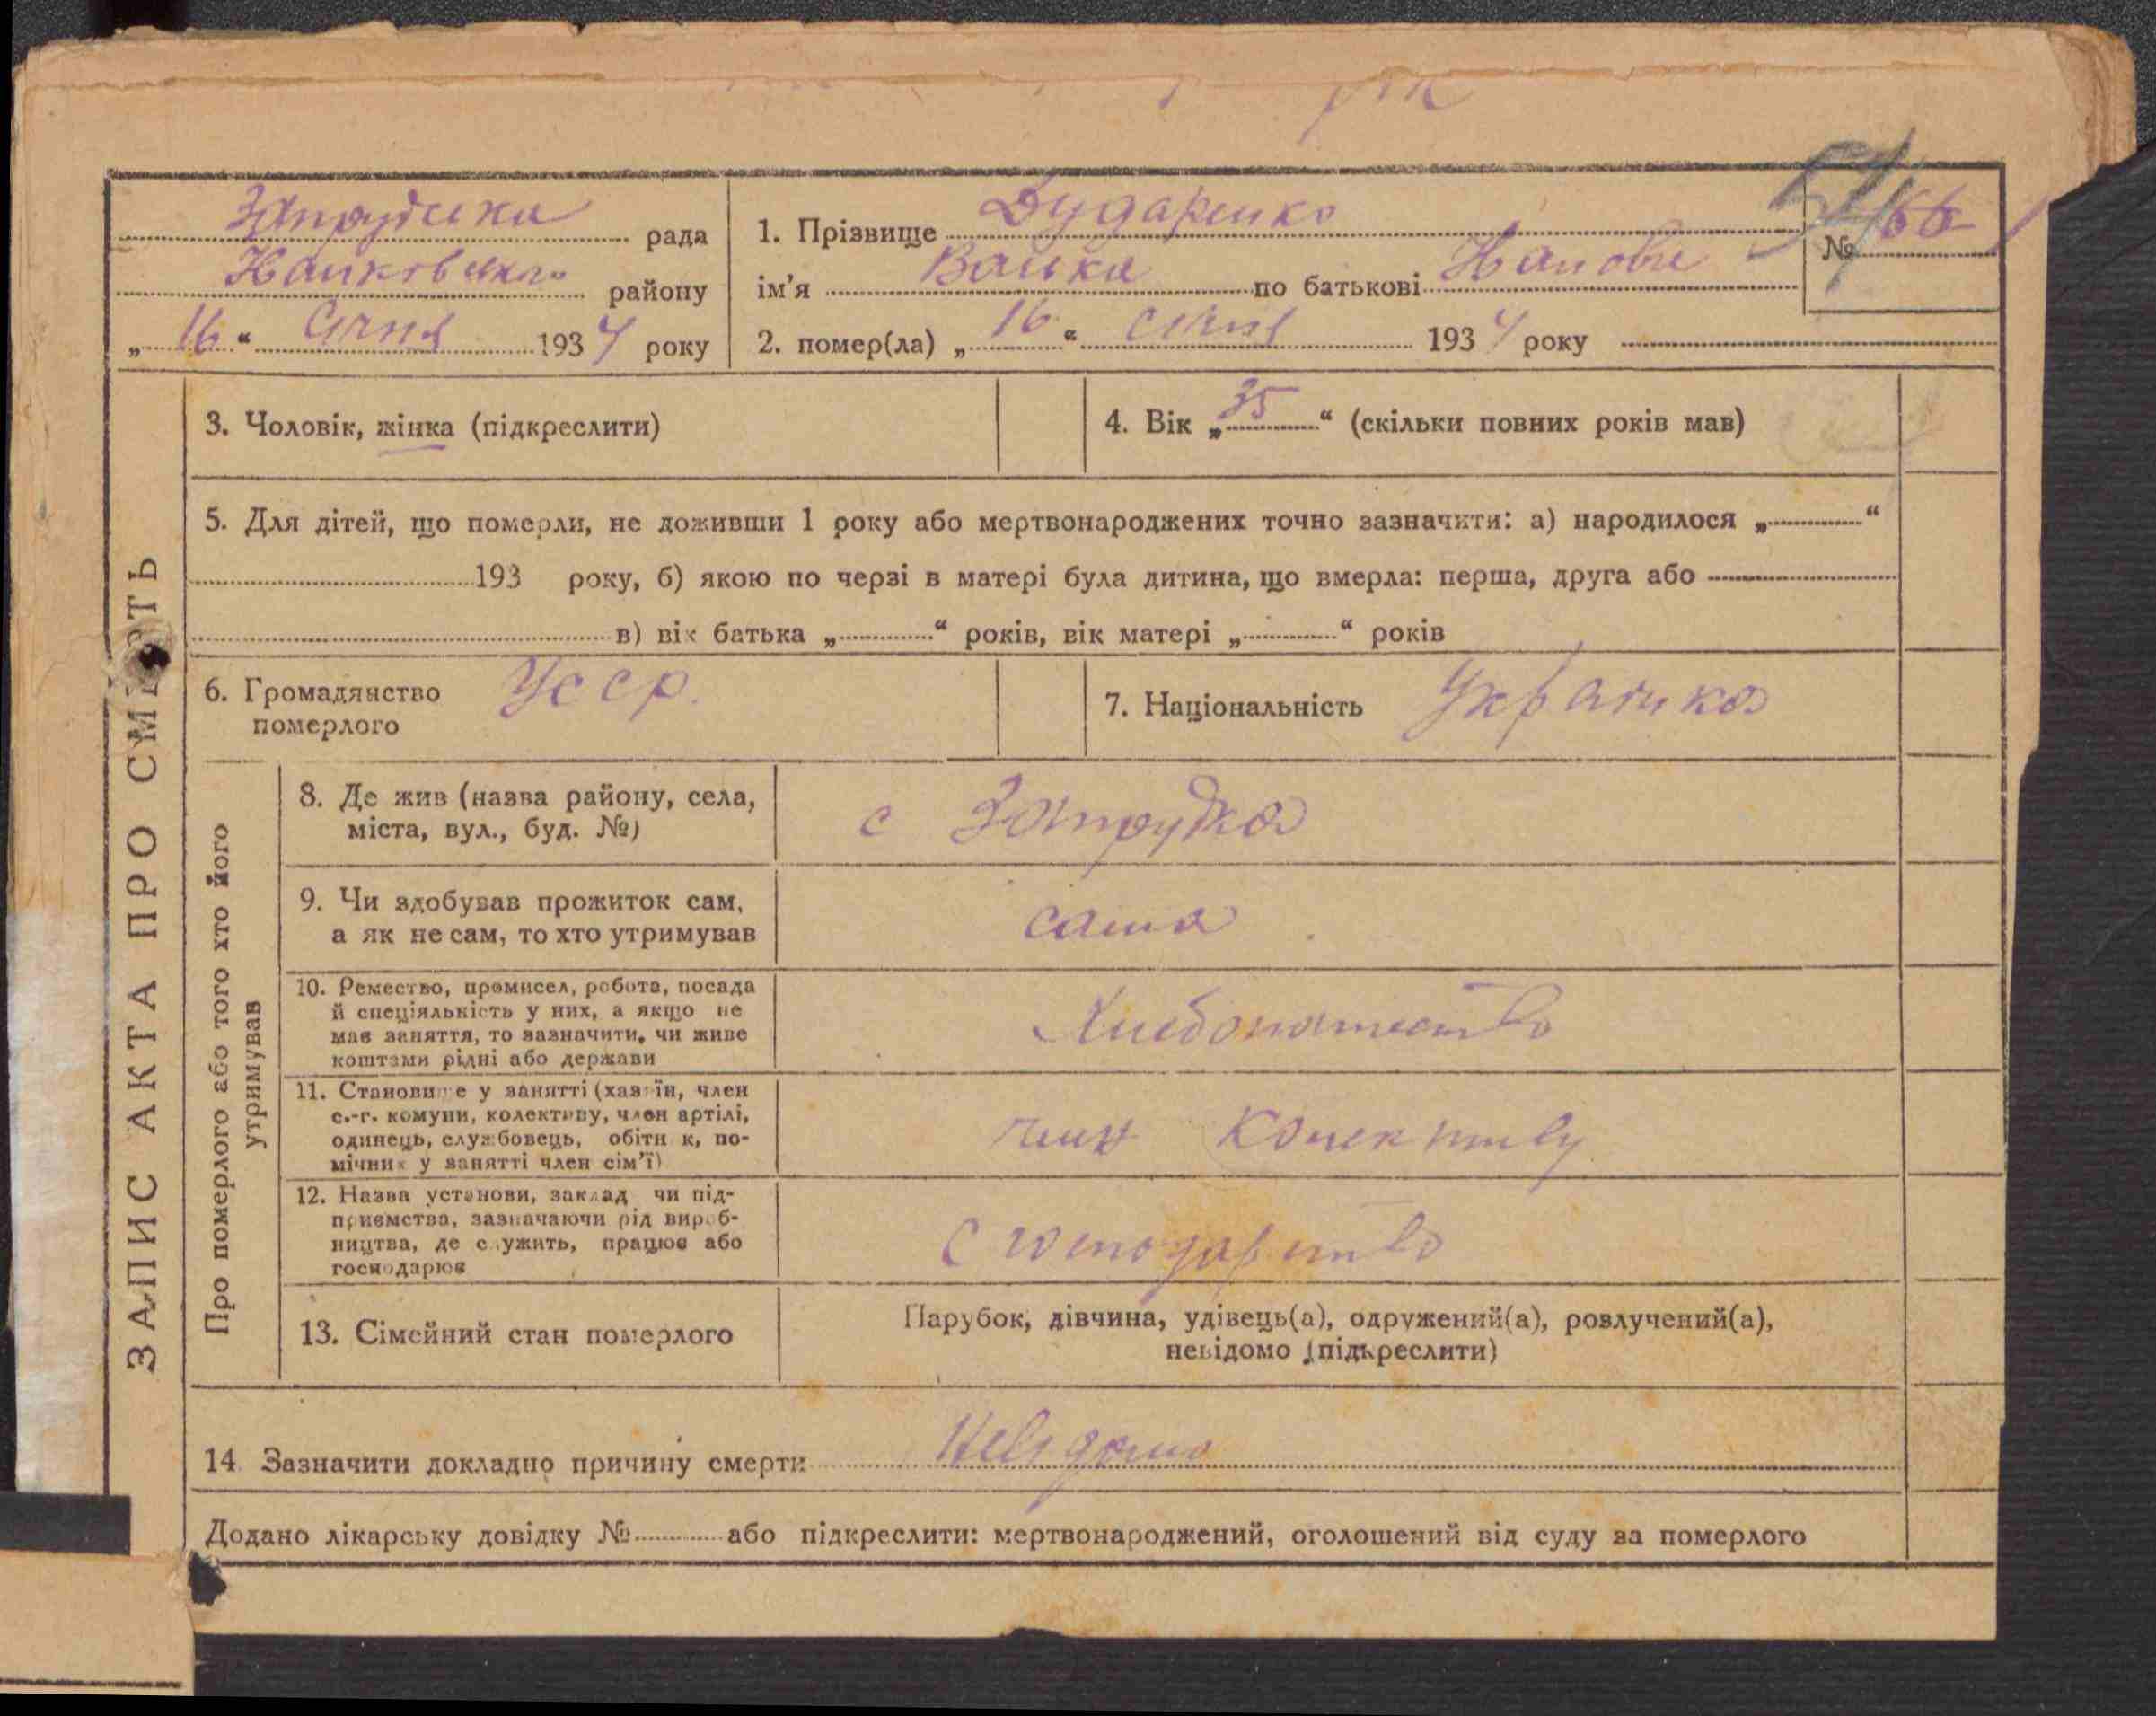 Запрудська рада
району
„ 16 “ Січня 1934 року
1. Прізвище Дударенко
ім'я по батькові
2. помер(ла) „ 16 “ січня 1934 року
№ 66
ЗАПИС АКТА ПРО СМЕРТЬ
3. Чоловік, жінка (підкреслити)
4. Вік „ 35 “ (скільки повних років мав)
5. Для дітей, що померли, не доживши 1 року або мертвонароджених точно зазначити: а) народилося „ “
193 року, б) якою по черзі в матері була дитина, що вмерла: перша, друга або
в) вік батька „ “ років, вік матері „ “ років
6. Громадянство
померлого
Усср.
7. Національність Українка
Про померлого або того хто його
утримував
8. Де жив (назва району, села,
міста, вул., буд. №)
с Запрудка
9. Чи здобував прожиток сам,
а як не сам, то хто утримував
сама
10. Ремество, промисел, робота, посада
й спеціяльність у них, а якщо не
має заняття, то зазначити, чи живе
коштами рідні або держави
Хлебопашество
11. Становище у занятті (хазяїн, член
с.-г. комуни, колективу, член артілі,
одинець, службовець, обітник, по-
мічник у занятті член сім'ї)
член колективу
12. Назва установи, заклад чи під-
приємства, зазначаючи рід вироб-
ництва, де служить, працює або
господарює
С господарство
13. Сімейний стан померлого
Парубок, дівчина, удівець(а), одружений(а), розлучений(а),
невідомо (підкреслити)
14. Зазначити докладно причину смерти Невідомо
Додано лікарську довідку № або підкреслити: мертвонароджений, оголошений від суду за померлого